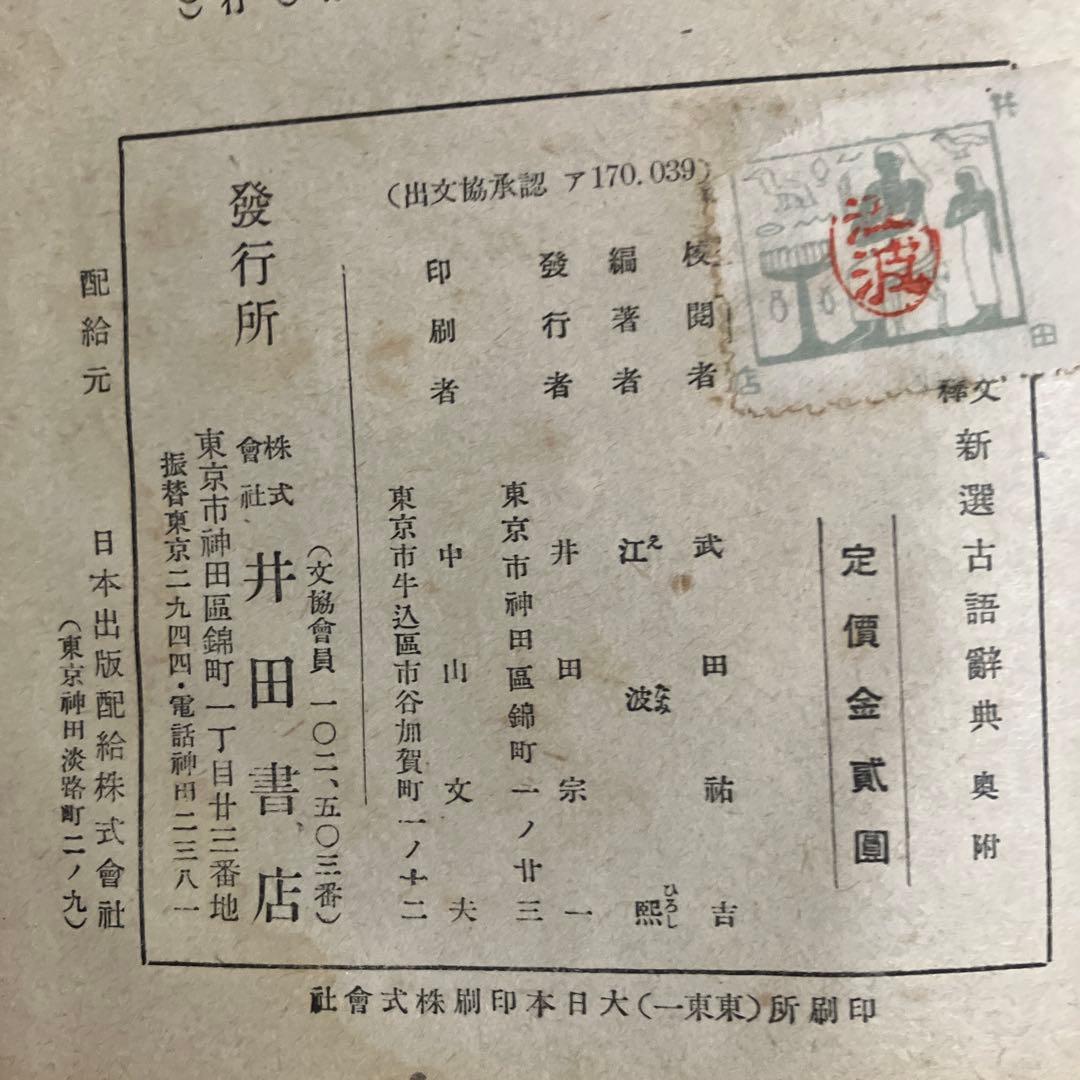 文釋 新選古語辭典 奧附
定價金貳圓
校閱者 武田祐吉
編著者 江波熙
え なみ ひろし
發行者 井田宗一
東京市神田區錦町一ノ廿三
印刷者 中山文夫
東京市牛込區市谷加賀町一ノ十二
(出文協承認 ア170.039)
(文協會員 一〇二、五〇三番)
發行所 株式會社 井田書店
東京市神田區錦町一丁目廿三番地
振替東京二九四四・電話神田二三八一
配給元 日本出版配給株式會社
(東京神田淡路町二ノ九)
印刷所(東東一)大日本印刷株式會社
江波
井
田
店